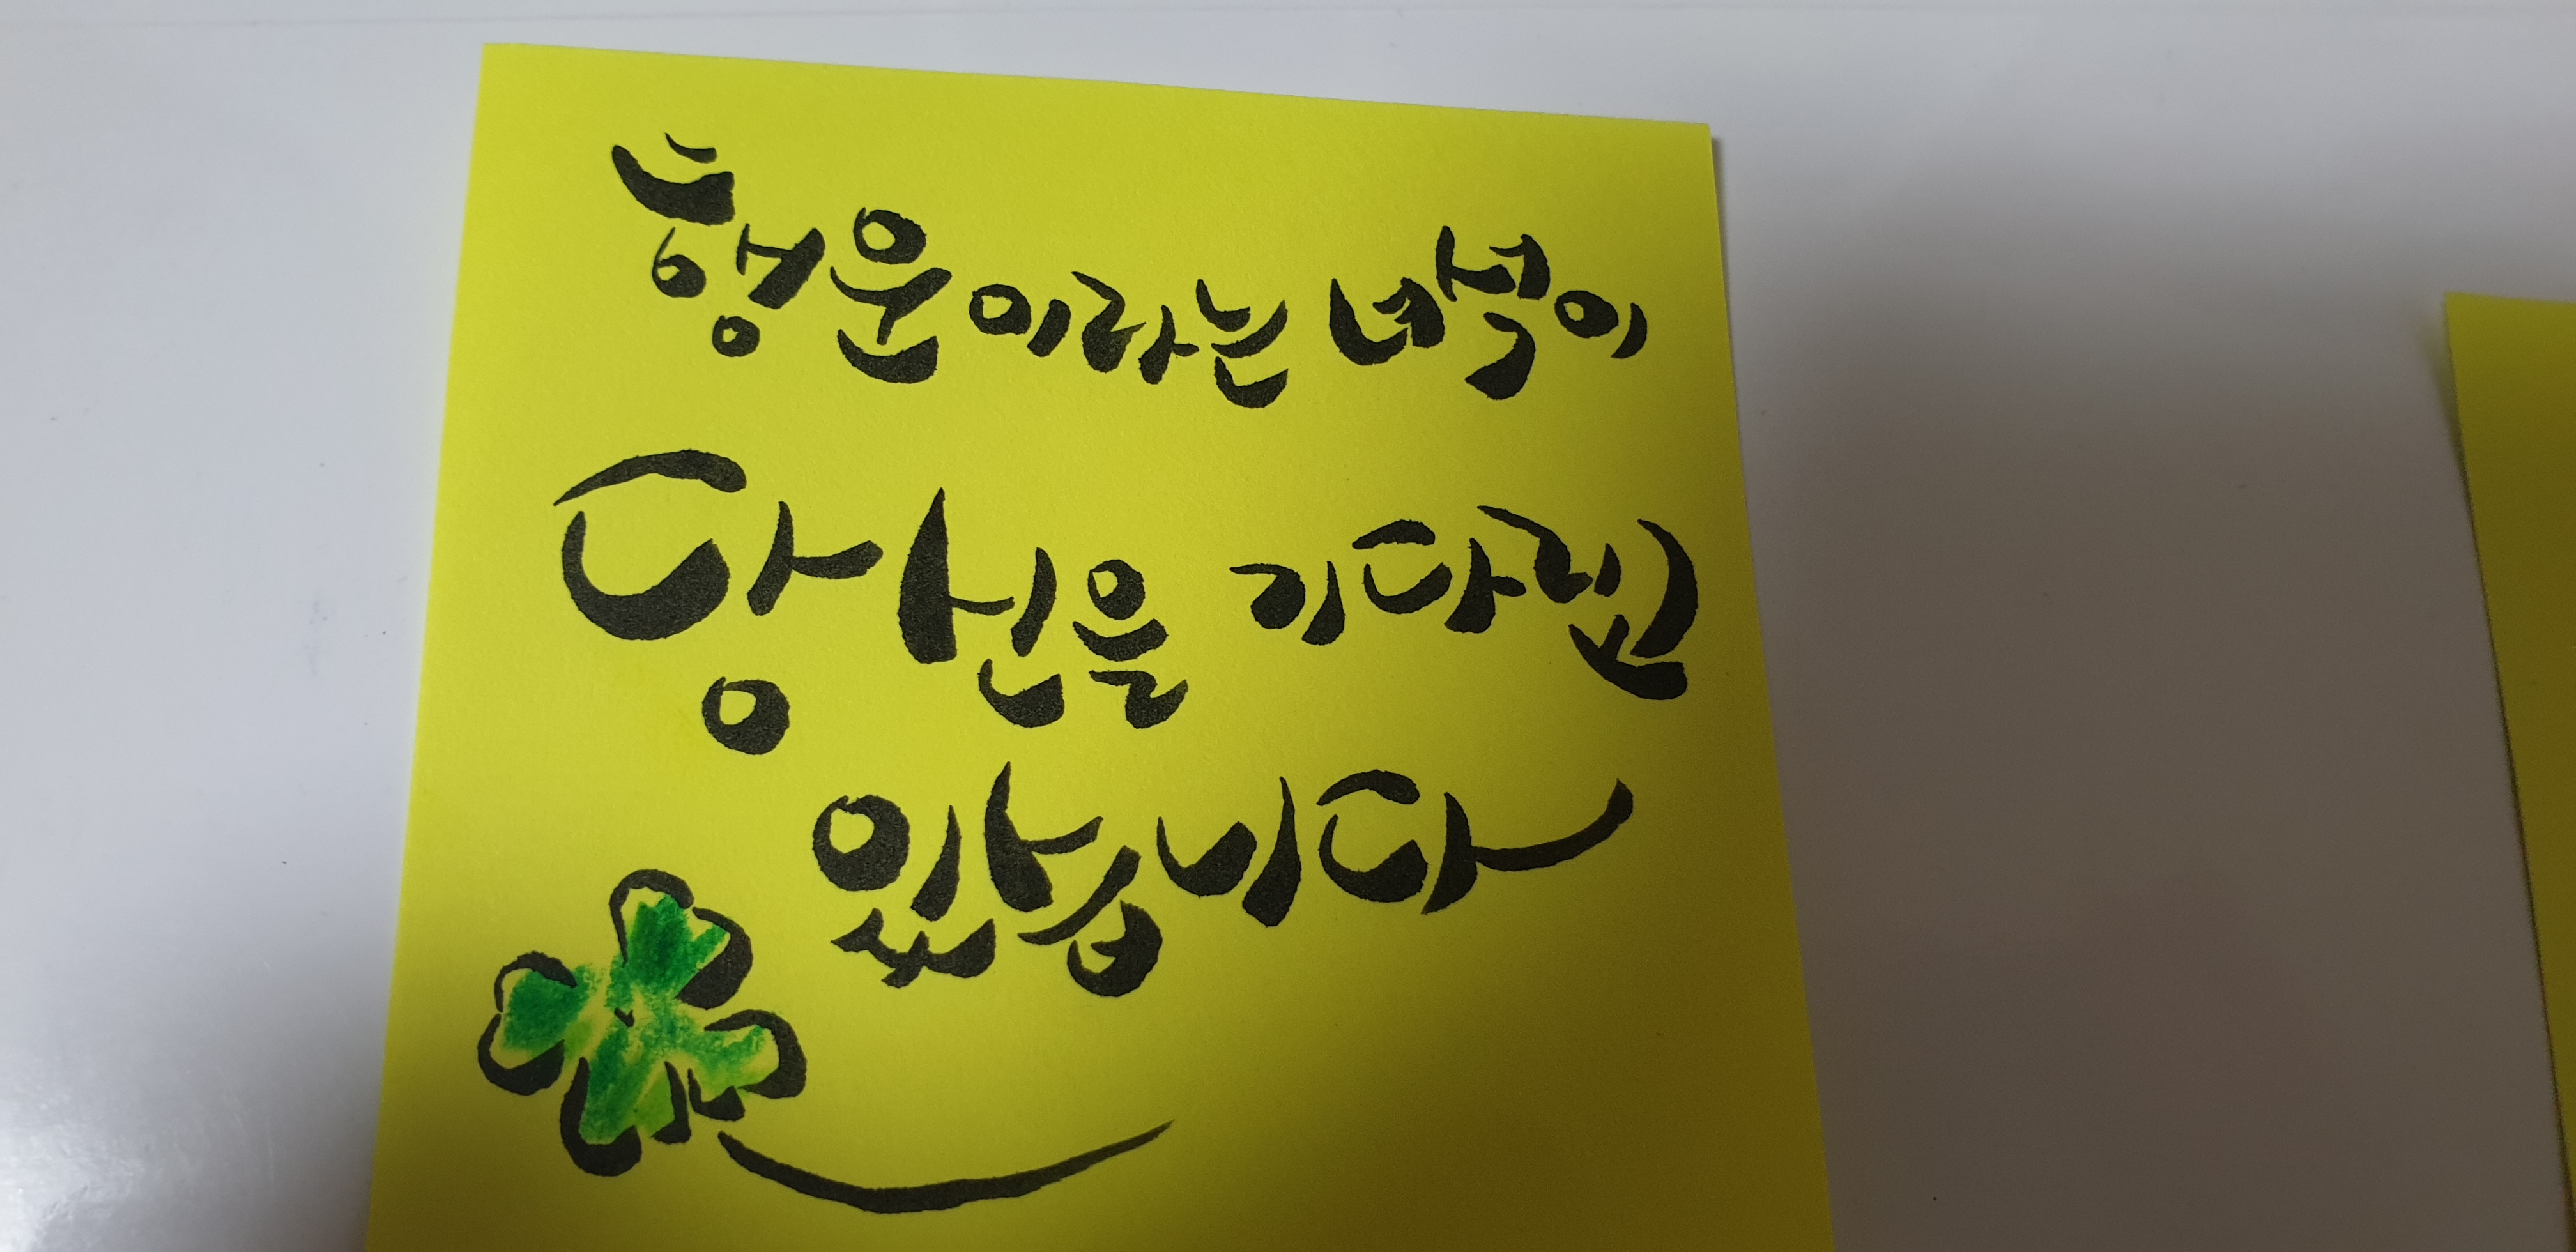 행운이라는 녀석이
당신을 기다리고
있습니다